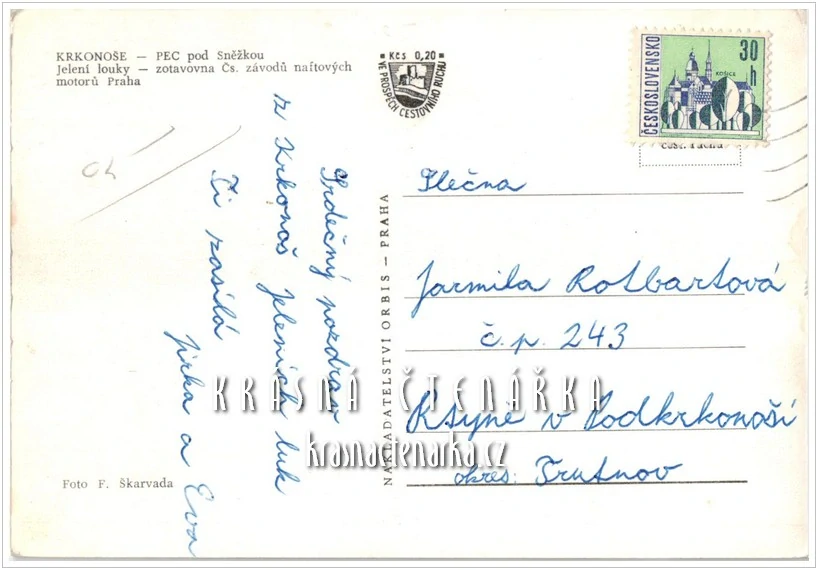 KRKONOŠE — PEC pod Sněžkou
Jelení louky — zotavovna Čs. závodů naftových
motorů Praha
Kčs 0,20
VE PROSPĚCH CESTOVNÍHO RUCHU
ČESKOSLOVENSKO
30
h
KOŠICE
Srdečný pozdrav
z Krkonoš Jeleních luk
Ti zasílá
Jirka a Eva
NAKLADATELSTVÍ ORBIS — PRAHA
Slečna
Jarmila Rotbartová
č.p. 243
Rtyně v Podkrkonoší
okres: Trutnov
KRÁSNÁ ČTENÁŘKA
krasnactenarka.cz
Foto F. Škarvada